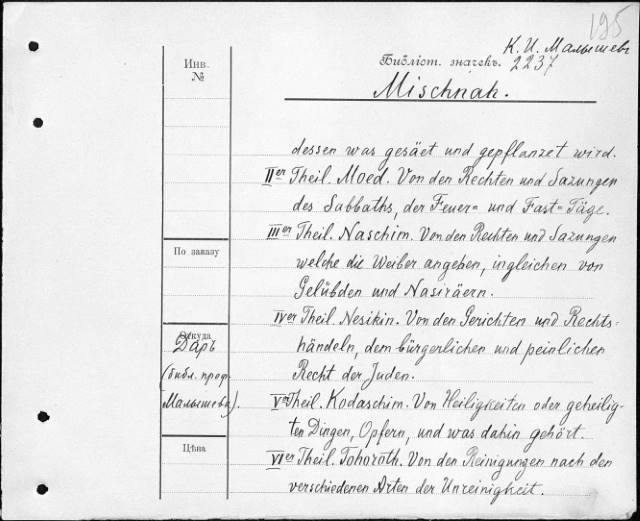 195
К. И. Малышевъ
Библіот. значекъ. 2237
Инв. №
Mischnah.
dessen was gesäet und gepflanzet wird.
IIer Theil. Moed. Von den Rechten und Sazungen
des Sabbaths, der Feuer= und Fast=Täge.
IIIer Theil. Naschim. Von den Rechten und Sazungen
welche die Weiber angehen, ingleichen von
Gelübden und Nasiräern.
IVer Theil. Nesikin. Von den Gerichten und Rechts-
händeln, dem bürgerlichen und peinlichen
Recht der Juden.
Ver Theil. Kodaschim. Von Heiligkeiten oder geheilig-
ten Dingen, Opfern, und was dahin gehört.
VIer Theil. Tohoroth. Von den Reinigungen nach den
verschiedenen Arten der Unreinigkeit.
По заказу
Откуда
Даръ
(библ. проф.
Малышева).
Цѣна